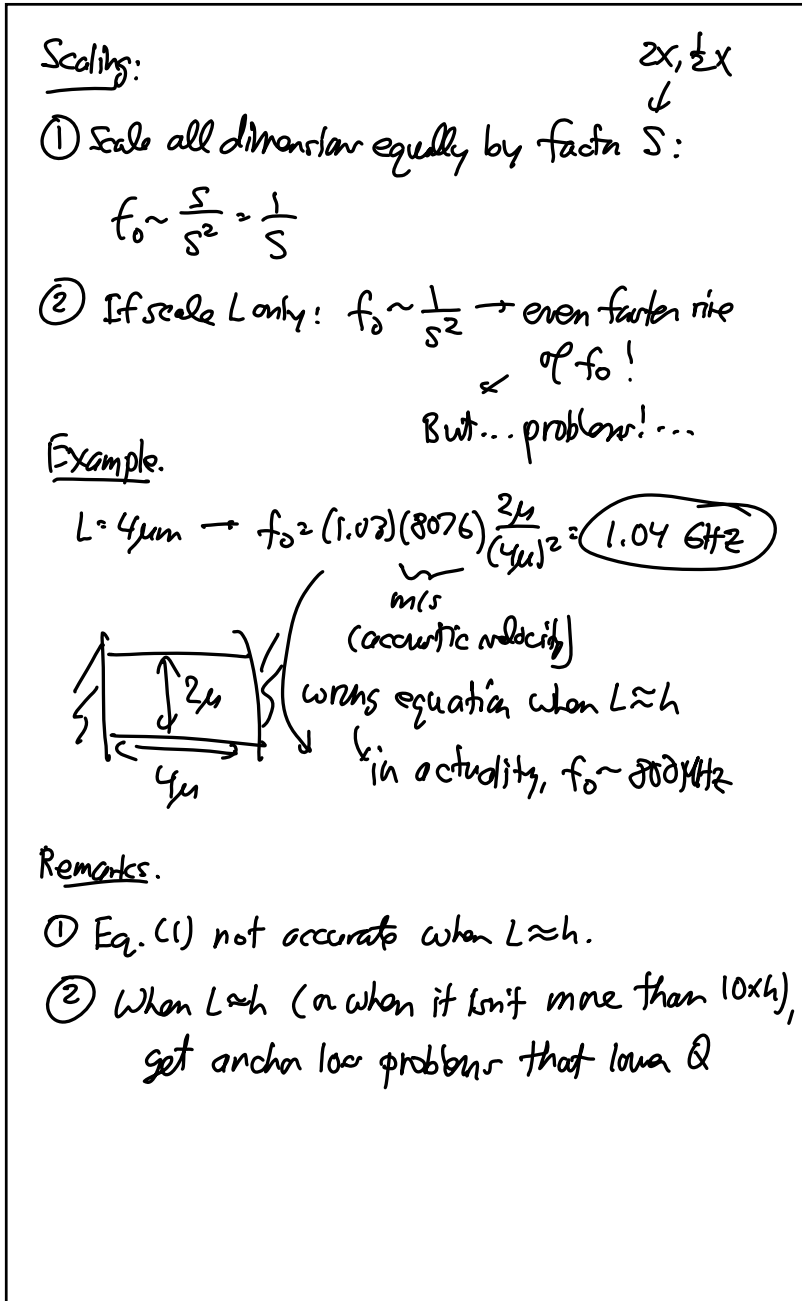 Scaling:
2x, ½x
↓
① Scale all dimensions equally by factor S:
f₀ ~ S/S² = 1/S
② If scale L only: f₀ ~ 1/S² → even faster rise
of f₀!
But... problems!...
Example.
L = 4μm → f₀ = (1.03)(8076) 2μ/(4μ)² = 1.04 GHz
m/s
(acoustic velocity)
2μ
wrong equation when L≈h
4μ
in actuality, f₀ ~ 800MHz
Remarks.
① Eq. (1) not accurate when L≈h.
② When L≈h (or when it isn't more than 10xh),
get anchor loss problems that lower Q